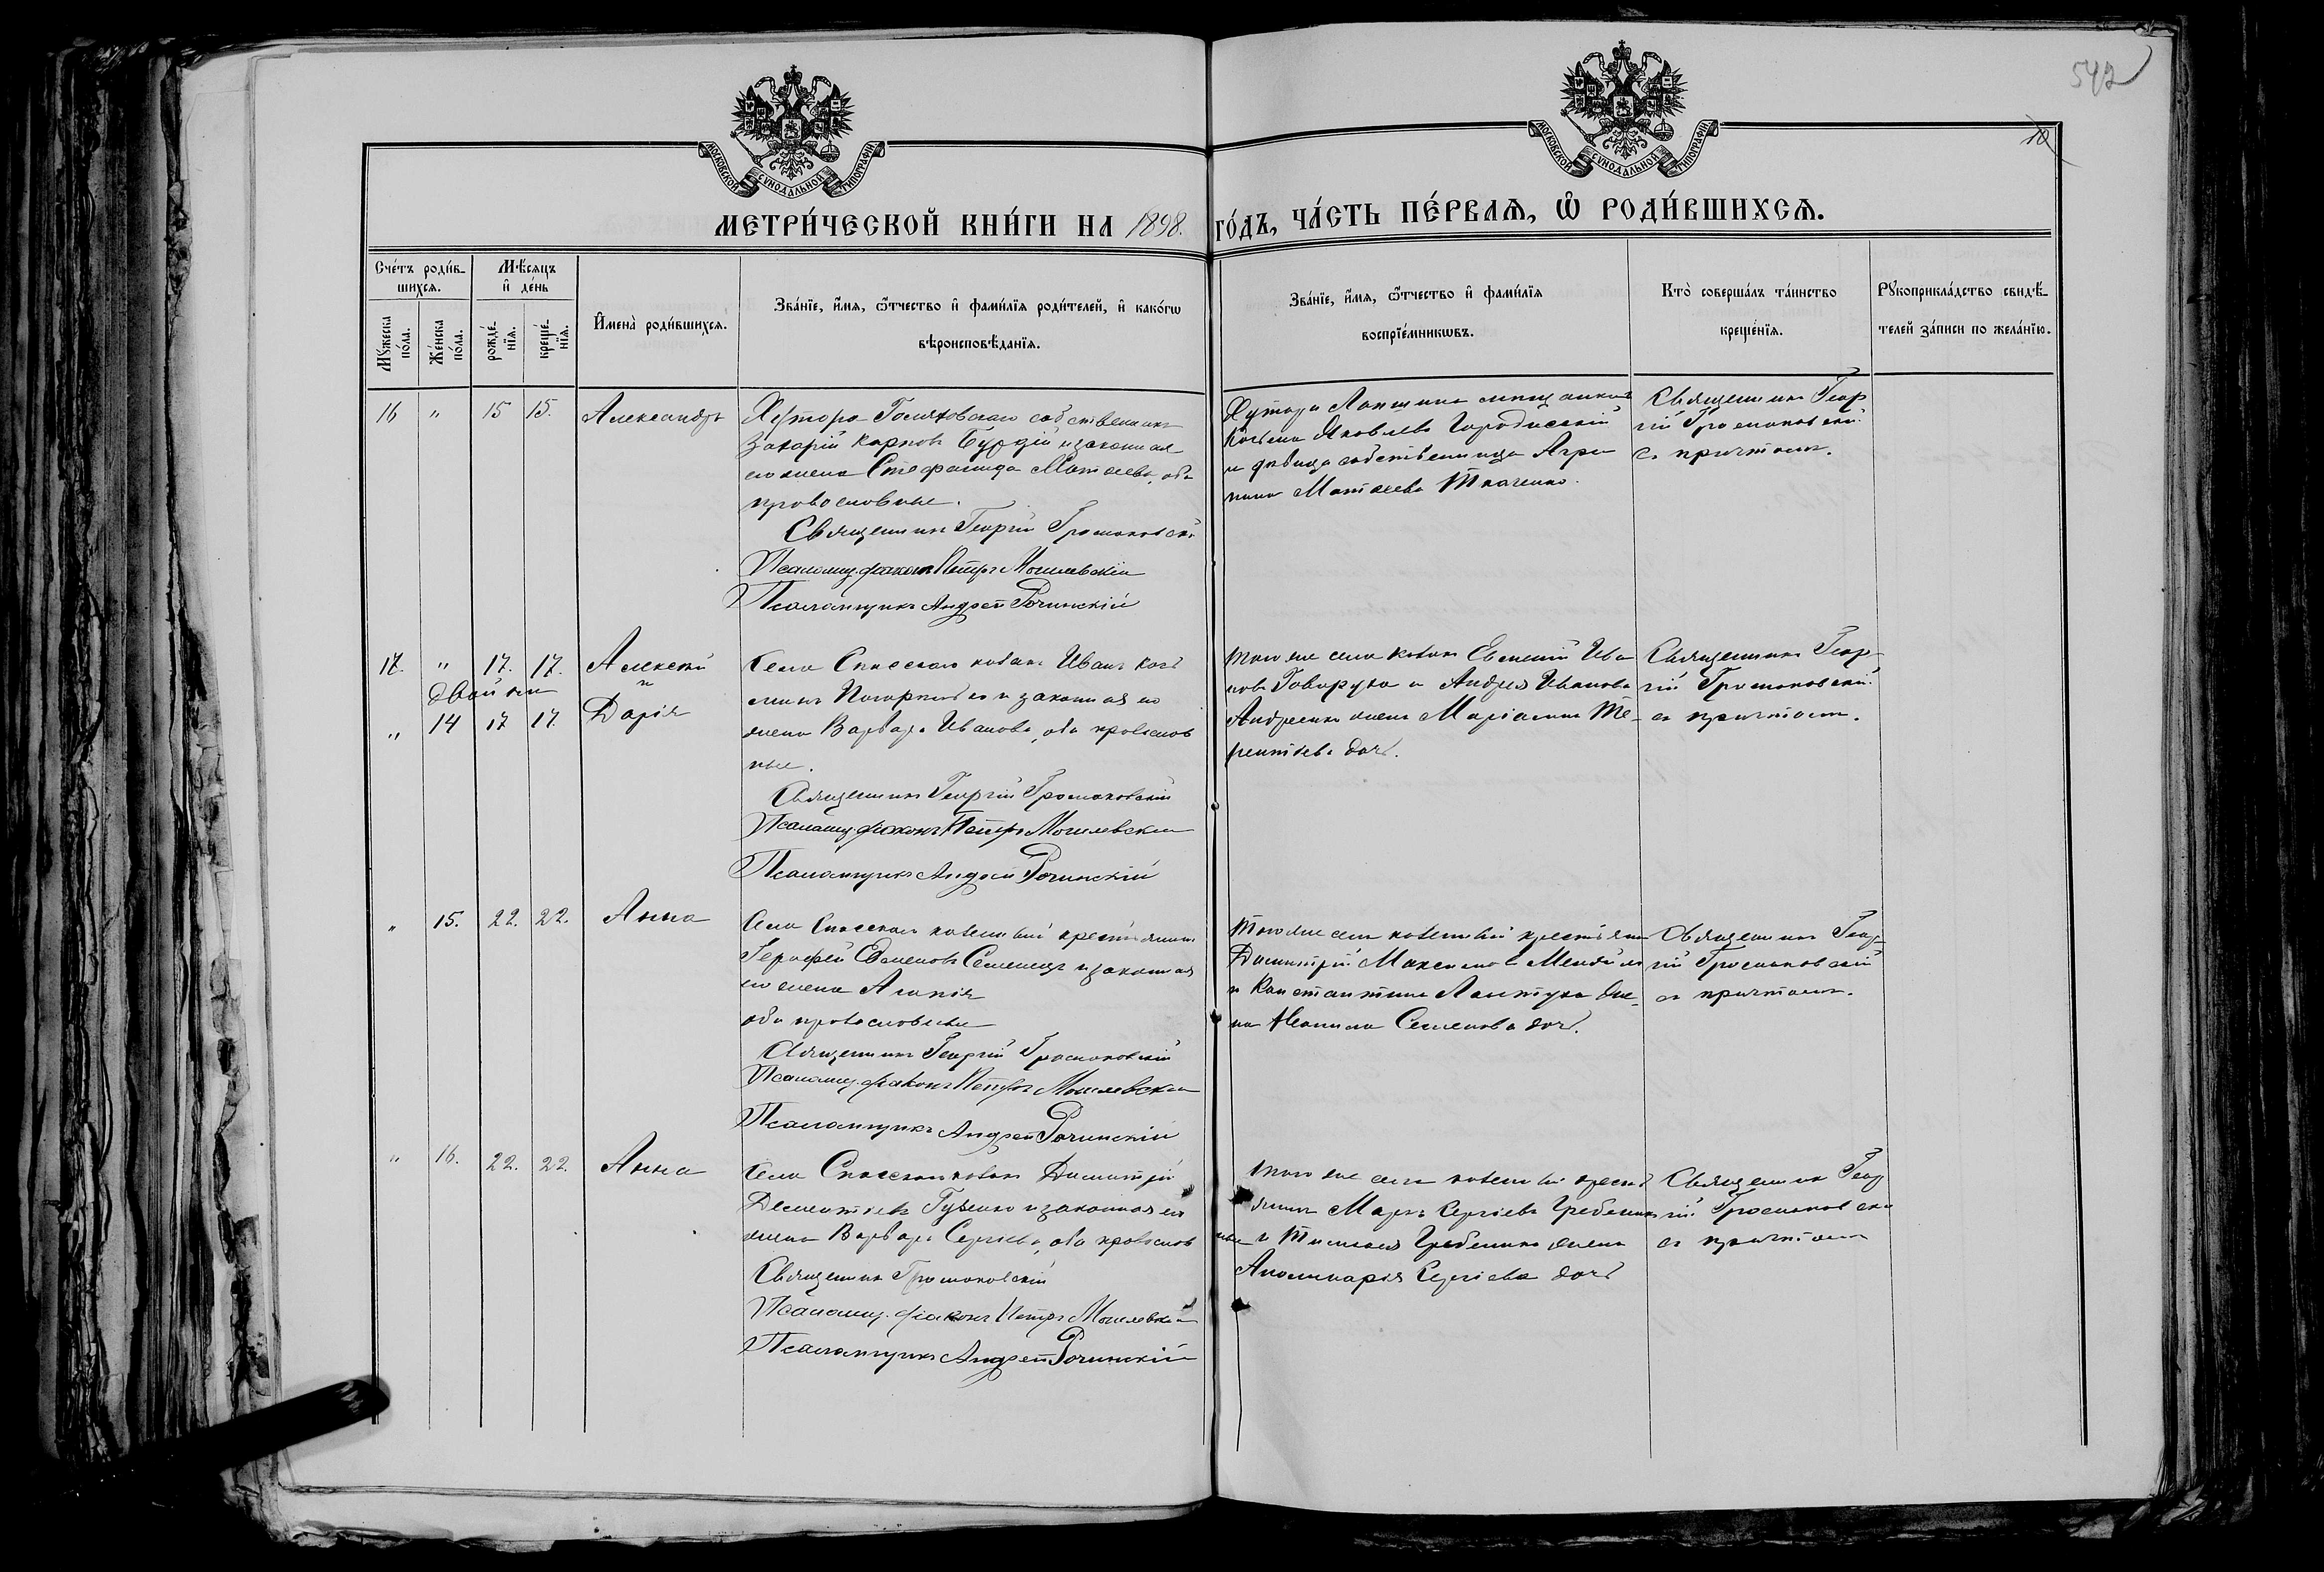 542
10
МОСКОВСКОЙ СѴНОДАЛЬНОЙ ТИПОГРАФІИ
МОСКОВСКОЙ СѴНОДАЛЬНОЙ ТИПОГРАФІИ
МЕТРИ́ЧЕСКОЙ КНИ́ГИ НА 1898. ГО́ДЪ, ЧА́СТЬ ПЕ́РВАЯ, Ѽ РОДИ́ВШИХСЯ.
Сче́тъ роди́в-
шихся.
Мꙋ́жеска по́ла.
Же́нска по́ла.
Мѣ́сяцъ и҆ де́нь
рожде́-нїя.
креще́-нїя.
И҆мена̀ роди́вшихся.
Зва́нїе, и҆́мя, ѻ҆́тчество и҆ фами́лїя роди́телей, и҆ како́гѡ
вѣроисповѣ́данїя.
Зва́нїе, и҆́мя, ѻ҆́тчество и҆ фами́лїя
воспрїе́мникѡвъ.
Кто̀ соверша́лъ та́инство
креще́нїя.
Рꙋкоприкла́дство свидѣ́-
телей за́писи по жела́нїю.
16 " 15 15. Александръ
Хутора собственникъ
Захарій Карповъ и законная
его жена Стефанида Матѳеева, оба
православные.
Священникъ Георгій Громаковскій
Псаломщ. діаконъ Петръ Могилевскій
Псаломщикъ Андрей Рочинскій
Хутора мещанинъ
Косьма Яковлевъ Городисскій
и девица собственница Агри
пина Матѳеева Ткаченко.
Священникъ Геор
гій Громаковскій
съ причтомъ.
17. " 17. 17. Алексѣй
двойни и
" 14 17 17 Дарія
Села Спасскаго козакъ Иванъ Кось
минъ и законная его
жена Варвара Иванова, оба православ
ные.
Священникъ Георгій Громаковскій
Псаломщ. діаконъ Петръ Могилевскій
Псаломщикъ Андрей Рочинскій
Того же села козакъ Евменій Ива
новъ Говоруха и Андрея Иванова
Андреенко жена Маріамна Те-
рентіева дочь.
Священникъ Геор-
гій Громаковскій
съ причтомъ.
" 15. 22. 22. Анна
Села Спасскаго казенный крестьянинъ
Семенецъ и законная
его жена Агапія
оба православные
Священникъ Георгій Громаковскій
Псаломщ. діаконъ Петръ Могилевскій
Псаломщикъ Андрей Рочинскій
Того же села казенный крестьянинъ
Димитрій Максимовъ
и Константина Лантуха же-
на Неонила Семенова дочь.
Священникъ Геор-
гій Громаковскій
съ причтомъ.
" 16. 22. 22. Анна
Села Спасскаго козакъ Димитрій
Дементіевъ Гузенко и законная его
жена Варвара Сергіева, оба православ
ные
Священникъ Громаковскій
Псаломщ. діаконъ Петръ Могилевскій
Псаломщикъ Андрей Рочинскій
Того же села казенный кресть
янинъ Маркъ Сергіевъ Гребенникъ
и Гребенника жена
Аполинарія Сергіева дочь
Священникъ Геор
гій Громаковскій
съ причтомъ